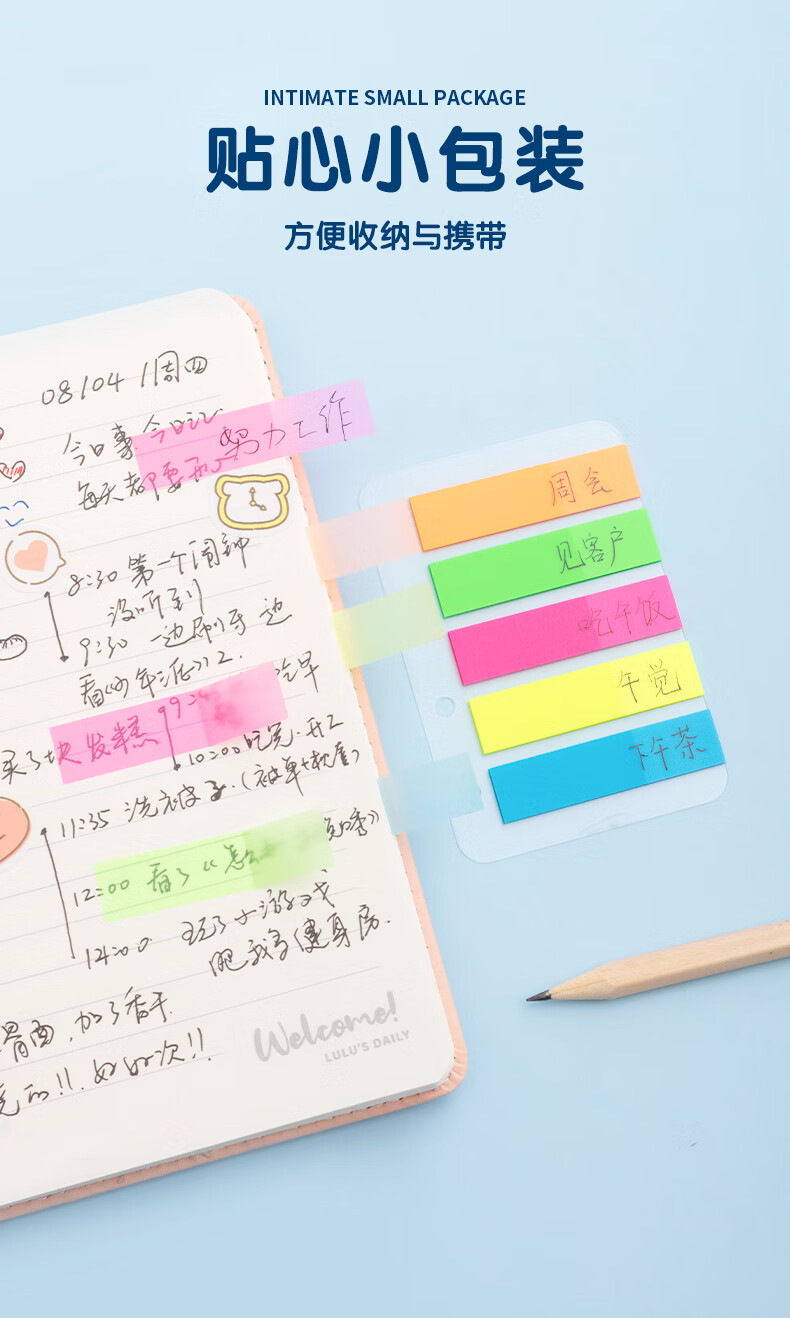 INTIMATE SMALL PACKAGE
贴心小包装
方便收纳与携带
08/04 /周四
今日事 今日记
努力工作
每天都要开心
周会
见客户
吃午饭
午觉
下午茶
8:30 第一个闹钟
没听到
9:30 一边刷牙 边
看
买了块发糕
吃早
10:00 吃完.开工
11:35 洗被子.(被单+枕套)
12:00 看了《怎么
14:00 玩了小游戏
肥我多健身房.
胃面,加了香干
Welcome!
LULU'S DAILY
完的!!. 好好次!!